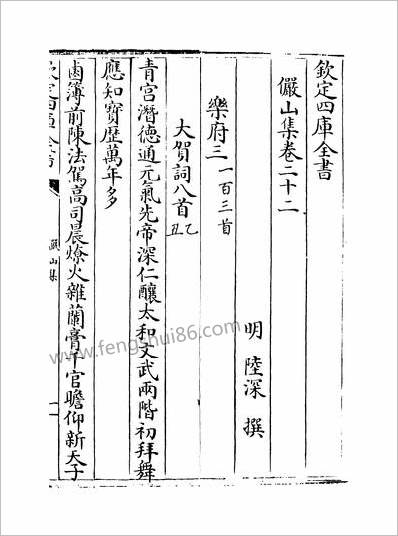 欽定四庫全書
儼山集卷二十二
明 陸深 撰
樂府三 一百三首
大賀詞八首 乙丑
青宮潛德通元氣先帝深仁釀太和文武兩階初拜舞
應知寶歷萬年多
鹵簿前陳法駕高司晨燎火雜蘭膏千官瞻仰新天子
儼山集
一
www.fengshui86.com